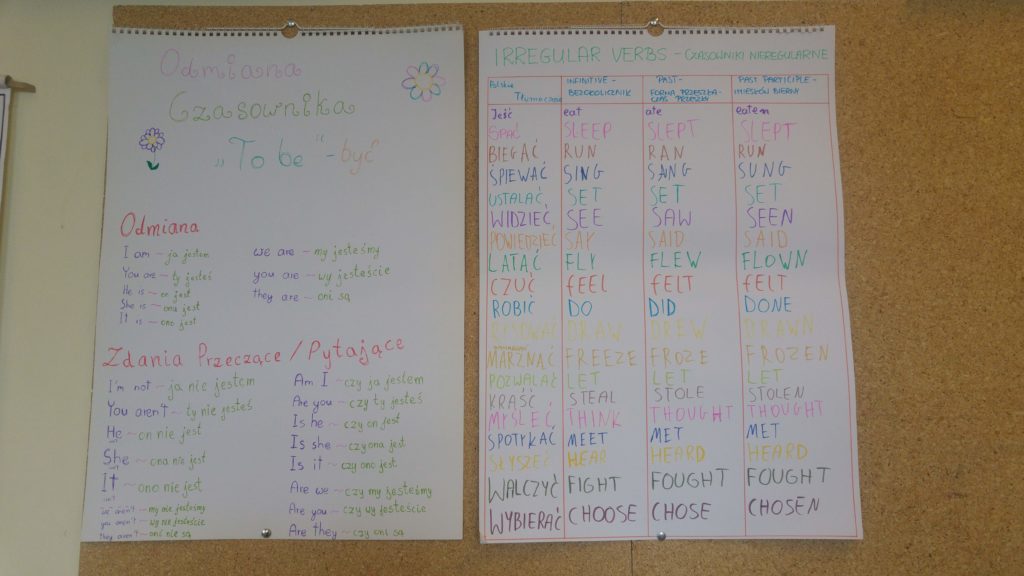 Odmiana
Czasownika
„To be" - być
Odmiana
I am ~ ja jestem
You are ~ ty jesteś
He is ~ on jest
She is ~ ona jest
It is ~ ono jest
we are ~ my jesteśmy
you are ~ wy jesteście
they are ~ oni są
Zdania Przeczące / Pytające
I'm not ~ ja nie jestem
You aren't ~ ty nie jesteś
He ~ on nie jest
isn't
She ~ ona nie jest
isn't
It ~ ono nie jest
isn't
we aren't ~ my nie jesteśmy
you aren't ~ wy nie jesteście
they aren't ~ oni nie są
Am I ~ czy ja jestem
Are you ~ czy ty jesteś
Is he ~ czy on jest
Is she ~ czy ona jest
Is it ~ czy ono jest
Are we ~ czy my jesteśmy
Are you ~ czy wy jesteście
Are they ~ czy oni są
IRREGULAR VERBS - CZASOWNIKI NIEREGULARNE
Polskie Tłumaczenie INFINITIVE - BEZOKOLICZNIK PAST - FORMA PRZESZŁA - CZAS PRZESZŁY PAST PARTICIPLE - IMIESŁÓW BIERNY
Jeść eat ate eaten
SPAĆ SLEEP SLEPT SLEPT
BIEGAĆ RUN RAN RUN
ŚPIEWAĆ SING SANG SUNG
USTALAĆ SET SET SET
WIDZIEĆ SEE SAW SEEN
POWIEDZIEĆ SAY SAID SAID
LATAĆ FLY FLEW FLOWN
CZUĆ FEEL FELT FELT
ROBIĆ DO DID DONE
RYSOWAĆ DRAW DREW DRAWN
MARZNĄĆ FREEZE FROZE FROZEN
POZWALAĆ LET LET LET
KRAŚĆ STEAL STOLE STOLEN
MYŚLEĆ THINK THOUGHT THOUGHT
SPOTYKAĆ MEET MET MET
SŁYSZEĆ HEAR HEARD HEARD
WALCZYĆ FIGHT FOUGHT FOUGHT
WYBIERAĆ CHOOSE CHOSE CHOSEN